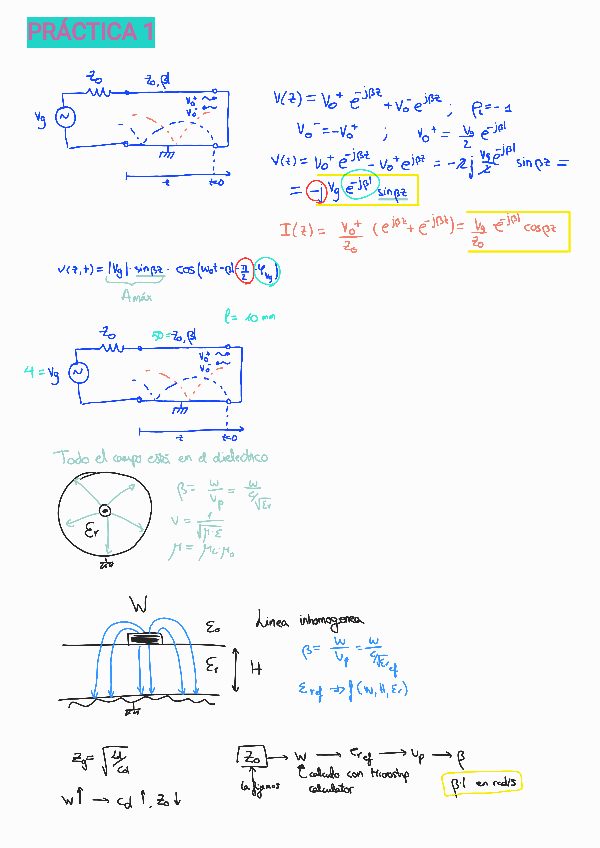 PRÁCTICA 1
Z₀
Z₀, β
V₀⁺
V₀⁻
Vg
-z
z=0
V(z) = V₀⁺ e^{-jβz} + V₀⁻ e^{jβz} ; ρ_L = -1
V₀⁻ = -V₀⁺ ; V₀⁺ = Vg/2 e^{-jβl}
V(z) = V₀⁺ e^{-jβz} - V₀⁺ e^{jβz} = -2j Vg/2 e^{-jβl} sin βz =
= -j Vg e^{-jβl} sin βz
I(z) = V₀⁺/Z₀ (e^{jβz} + e^{-jβz}) = Vg/Z₀ e^{-jβl} cos βz
v(z,t) = |Vg| · sin βz · cos(ω₀t - βl - π/2 + φ_Vg)
Amáx
l = 10 mm
Z₀
50 = Z₀, β
V₀⁺
V₀⁻
4 = Vg
-z
z=0
Todo el campo está en el dieléctrico
εr
β = w/Vp = w/(c/√εr)
V = 1/√(μ·ε)
μ = μr·μ₀
W
ε₀
εr
H
Línea inhomogenea
β = w/Vp = w/(c/√εref)
εref ⇒ f(W, H, εr)
W ↑ → Cd ↑, Z₀ ↓
Z₀ → W → εref → Vp → β
la fijamos
Calculo con Microstrip
calculator
β·l en rad/s